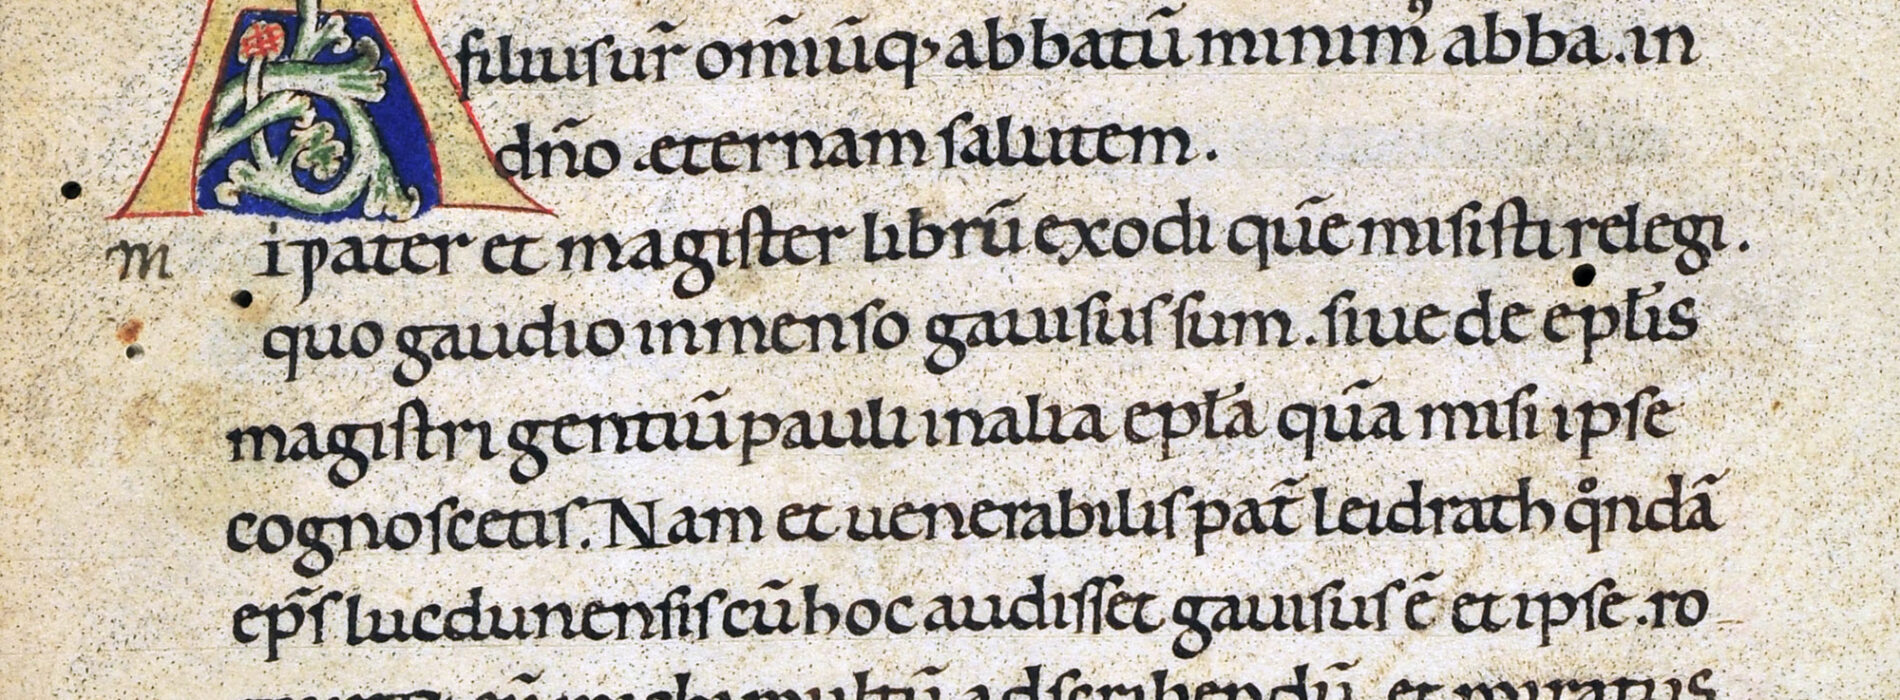 filiusur̄ om̄iūq; abbatū minimꝰ abba. in
dn̄o .eternam salutem.
m ipater et magister librū exodi quē misisti relegi.
quo gaudio inmenso gauisus sum. siue de ep̄lis
magistri gentiū pauli in alia ep̄la quā misi ipse
cognoscetis. Nam et uenerabilis pat̄ leidrath qͦndā
ep̄s lucdunensis cū hoc audisset gauisus ē et ipse .ro
multū adscribendū. et miratus